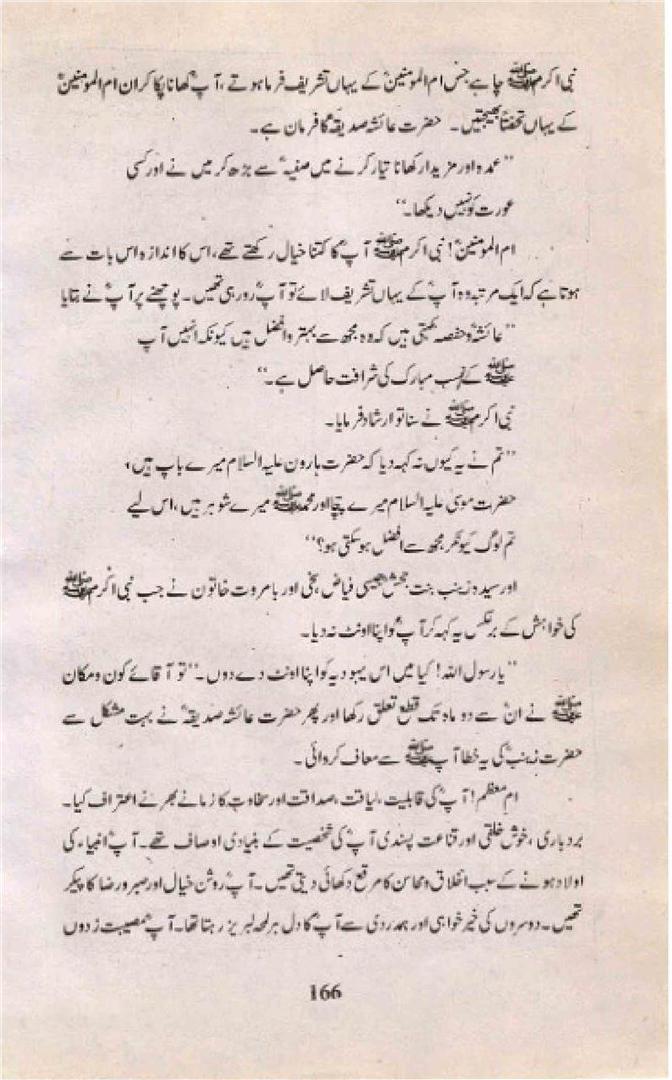 نبی اکرم ﷺ چاہے جس ام المومنینؓ کے یہاں تشریف فرما ہوتے، آپؓ کھانا پکا کر ان ام المومنینؓ
کے یہاں تحفتاً بھیجتیں۔ حضرت عائشہ صدیقہؓ کا فرمان ہے۔
”عمدہ اور مزیدار کھانا تیار کرنے میں صفیہؓ سے بڑھ کر میں نے اور کسی
عورت کو نہیں دیکھا۔“
ام المومنینؓ! نبی اکرم ﷺ آپؓ کا کتنا خیال رکھتے تھے، اس کا اندازہ اس بات سے
ہوتا ہے کہ ایک مرتبہ وہ آپؓ کے یہاں تشریف لائے تو آپؓ رو رہی تھیں۔ پوچھنے پر آپؓ نے بتایا
”عائشہؓ و حفصہ کہتی ہیں کہ وہ مجھ سے بہتر و افضل ہیں کیونکہ انہیں آپ
ﷺ کے نسب مبارک کی شرافت حاصل ہے۔“
نبی اکرم ﷺ نے سنا تو ارشاد فرمایا۔
”تم نے یہ کیوں نہ کہہ دیا کہ حضرت ہارون علیہ السلام میرے باپ ہیں،
حضرت موسیٰ علیہ السلام میرے چچا اور محمد ﷺ میرے شوہر ہیں، اس لیے
تم لوگ کیونکر مجھ سے افضل ہو سکتی ہو؟“
اور سیدہ زینب بنت جحشؓ جیسی فیاض، سخی اور بامروت خاتون نے جب نبی اکرم ﷺ
کی خواہش کے برعکس یہ کہہ کر آپؓ کو اپنا اونٹ نہ دیا۔
”یا رسول اللہ! کیا میں اس یہودیہ کو اپنا اونٹ دے دوں۔“ تو آقائے کون و مکان
ﷺ نے انؓ سے دو ماہ تک قطع تعلق رکھا اور پھر حضرت عائشہ صدیقہؓ نے بہت مشکل سے
حضرت زینبؓ کی یہ خطا آپ ﷺ سے معاف کروائی۔
ام معظم! آپؓ کی قابلیت، لیاقت، صداقت اور سخاوت کا زمانے بھر نے اعتراف کیا۔
بردباری، خوش خلقی اور قناعت پسندی آپؓ کی شخصیت کے بنیادی اوصاف تھے۔ آپؓ انبیاء کی
اولاد ہونے کے سبب اخلاق و محاسن کا مرقع دکھائی دیتی تھیں۔ آپؓ روشن خیال اور صبر و رضا کا پیکر
تھیں۔ دوسروں کی خیر خواہی اور ہمدردی سے آپؓ کا دل ہر لمحہ لبریز رہتا تھا۔ آپؓ مصیبت زدوں
166